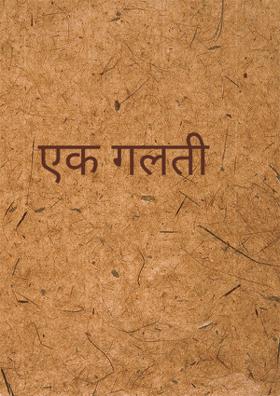 एक गलती